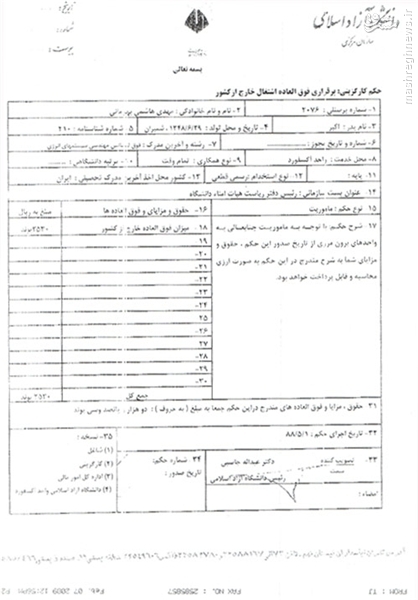 دانشگاه آزاد اسلامی
سازمان مرکزی
بسمه تعالی
حکم کارگزینی: برقراری فوق العاده اشتغال خارج از کشور
۱- شماره پرسنلی: ۲۰۷۶
۲- نام و نام خانوادگی: مهدی هاشمی
۳- نام پدر: اکبر
۴- تاریخ و محل تولد: ۱۳۴۸/۶/۲۹ شمیران
۵ شماره شناسنامه: ۲۱۰
۶- شماره و تاریخ مجوز:
۷- رشته و آخرین مدرک: مهندسی سیستمهای انرژی
۸- محل خدمت: واحد آکسفورد
۹- نوع همکاری: تمام وقت
۱۰- مرتبه دانشگاهی:
۱۱- پایه:
۱۲- نوع استخدام: رسمی قطعی
۱۳- کشور محل اخذ آخرین مدرک تحصیلی: ایران
۱۴- عنوان پست سازمانی: رئیس دفتر ریاست هیات امناء دانشگاه
۱۵ نوع حکم: ماموریت
۱۶- حقوق و مزایای و فوق العاده ها
مبلغ به ریال
۱۷- شرح حکم: با توجه به ماموریت جنابعالی به
واحدهای برون مرزی از تاریخ صدور این حکم، حقوق و
مزایای شما به شرح مندرج در این حکم به صورت ارزی
محاسبه و قابل پرداخت خواهد بود.
۱۸- میزان فوق العاده خارج از کشور
۲۵۳۰ پوند
۱۹-
۲۰-
۲۱-
۲۲-
۲۳-
۲۴-
۲۵
۲۶-
۲۷-
۲۸-
۲۹-
۳۰-
جمع کل
۲۵۳۰ پوند
۳۱- حقوق، مزایا و فوق العاده های مندرج در این حکم جمعا به مبلغ (به حروف): دو هزار و پانصد وسی پوند
۳۲- تاریخ اجرای حکم: ۸۸/۵/۱
۳۳- تصویب کننده
دکتر عبدالله جاسبی
سمت
رئیس دانشگاه آزاد اسلامی
امضاء:
۳۴ شماره حکم:
تاریخ صدور:
۳۵- نسخه:
۱) شاغل
۲) کارگزینی
۳) اداره کل امور مالی
۴) دانشگاه آزاد اسلامی واحد آکسفورد
FROM : TJ
FAX NO. : 2585857
Feb. 07 2009 12:56PM P2
mashreghnews.ir